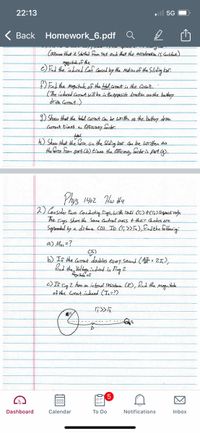 22:13
5G
Back
Homework_6.pdf
(assume that it starts from rest and that the acceleration is constant)
magnitude of the
e) Find the induced Emf caused by the motion of the sliding bar.
f) Find the magnitude of the total current in the circuit.
(The induced current will be in the opposite direction as the battery
driven current.)
g) Show that the total current can be written as the battery driven
current times an efficiency factor.
h) Show that the force on the sliding bar can be written as
the force from part (b) times the efficiency factor in part (g).
Phys 1402 HW #6
2) Consider two conducting rings with radii
The rings share the same central axis & their centers are
separated by a distance
a) M₂₁ = ?
b) If the current doubles every second
find the voltage induced in ring 2
magnitude of
c) If ring 2 has an internal resistance (R), find the magnitude
of the current induced (I₂ = ?)
r₁>>r₂
D
5
Dashboard
Calendar
To Do
Notifications
Inbox